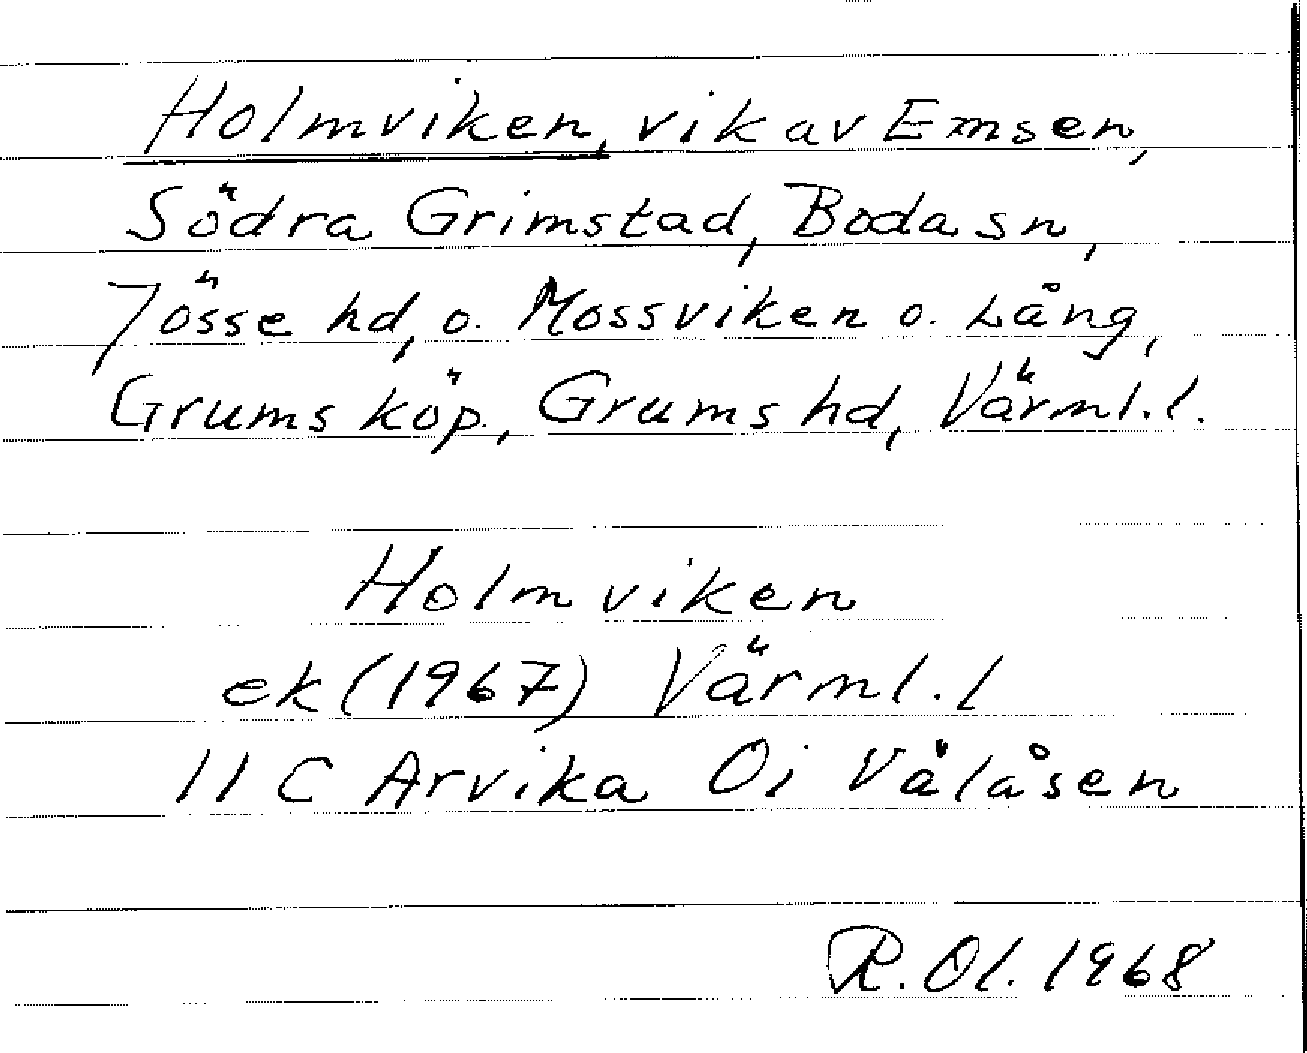 Holmviken, vik av Emsen,
Södra Grimstad, Boda sn,
Jösse hd, o. Mossviken o. Lång,
Grums köp., Grums hd, Värml. l.
Holmviken
ek (1967) Värml. l
11 C Arvika Oi Välåsen
R. Ol. 1968